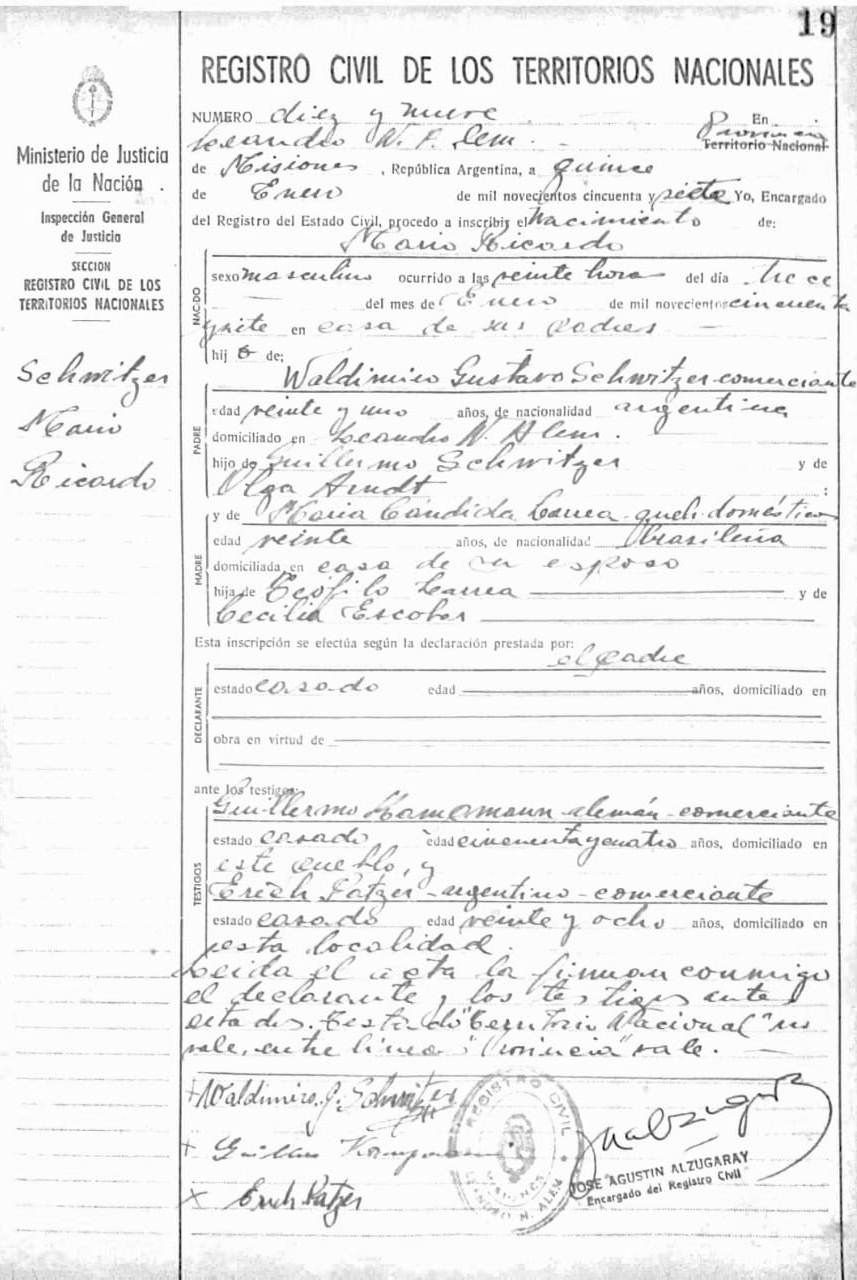 19
REGISTRO CIVIL DE LOS TERRITORIOS NACIONALES
Ministerio de Justicia
de la Nación
Inspección General
de Justicia
SECCION
REGISTRO CIVIL DE LOS
TERRITORIOS NACIONALES
Schwitzer
Mario
Ricardo
NUMERO diez y nueve En
Leandro N. Alem. Provincia
Territorio Nacional
de Misiones, República Argentina, a quince
de Enero de mil novecientos cincuenta y siete Yo, Encargado
del Registro del Estado Civil, procedo a inscribir el Nacimiento de:
Mario Ricardo
NACIDO
sexo masculino ocurrido a las veinte horas del día trece
del mes de Enero de mil novecientos cincuenta
y siete en casa de sus padres
hijo de:
Waldimiro Gustavo Schwitzer-comerciante
PADRE
edad veinte y uno años, de nacionalidad argentina
domiciliado en Leandro N. Alem.
hijo de Guillermo Schwitzer y de
Olga Arndt :
MADRE
y de María Cándida Larrea-queh. domésticos
edad veinte años, de nacionalidad Brasileña
domiciliada en casa de su esposo
hija de Teófilo Larrea y de
Cecilia Escobar
Esta inscripción se efectúa según la declaración prestada por:
el padre
DECLARANTE
estado casado edad años, domiciliado en
obra en virtud de
ante los testigos:
TESTIGOS
Guillermo alemán-comerciante
estado casado edad cincuenta y cuatro años, domiciliado en
este pueblo, y
Erich Patzer-argentino-comerciante
estado casado edad veinte y ocho años, domiciliado en
esta localidad.
Leida el acta la firman conmigo
el declarante y los testigos antes
citados. Testado "Territorio Nacional" no
vale, entre línea "Provincia" vale.
+ Waldimiro. G. Schwitzer
+
x Erich Patzer
REGISTRO CIVIL
MISIONES
LEANDRO N. ALEM
JOSE AGUSTIN ALZUGARAY
Encargado del Registro Civil